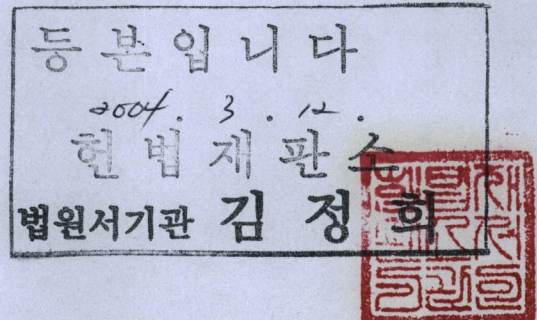 등본입니다
2004. 3. 12.
헌법재판소
법원서기관 김정희